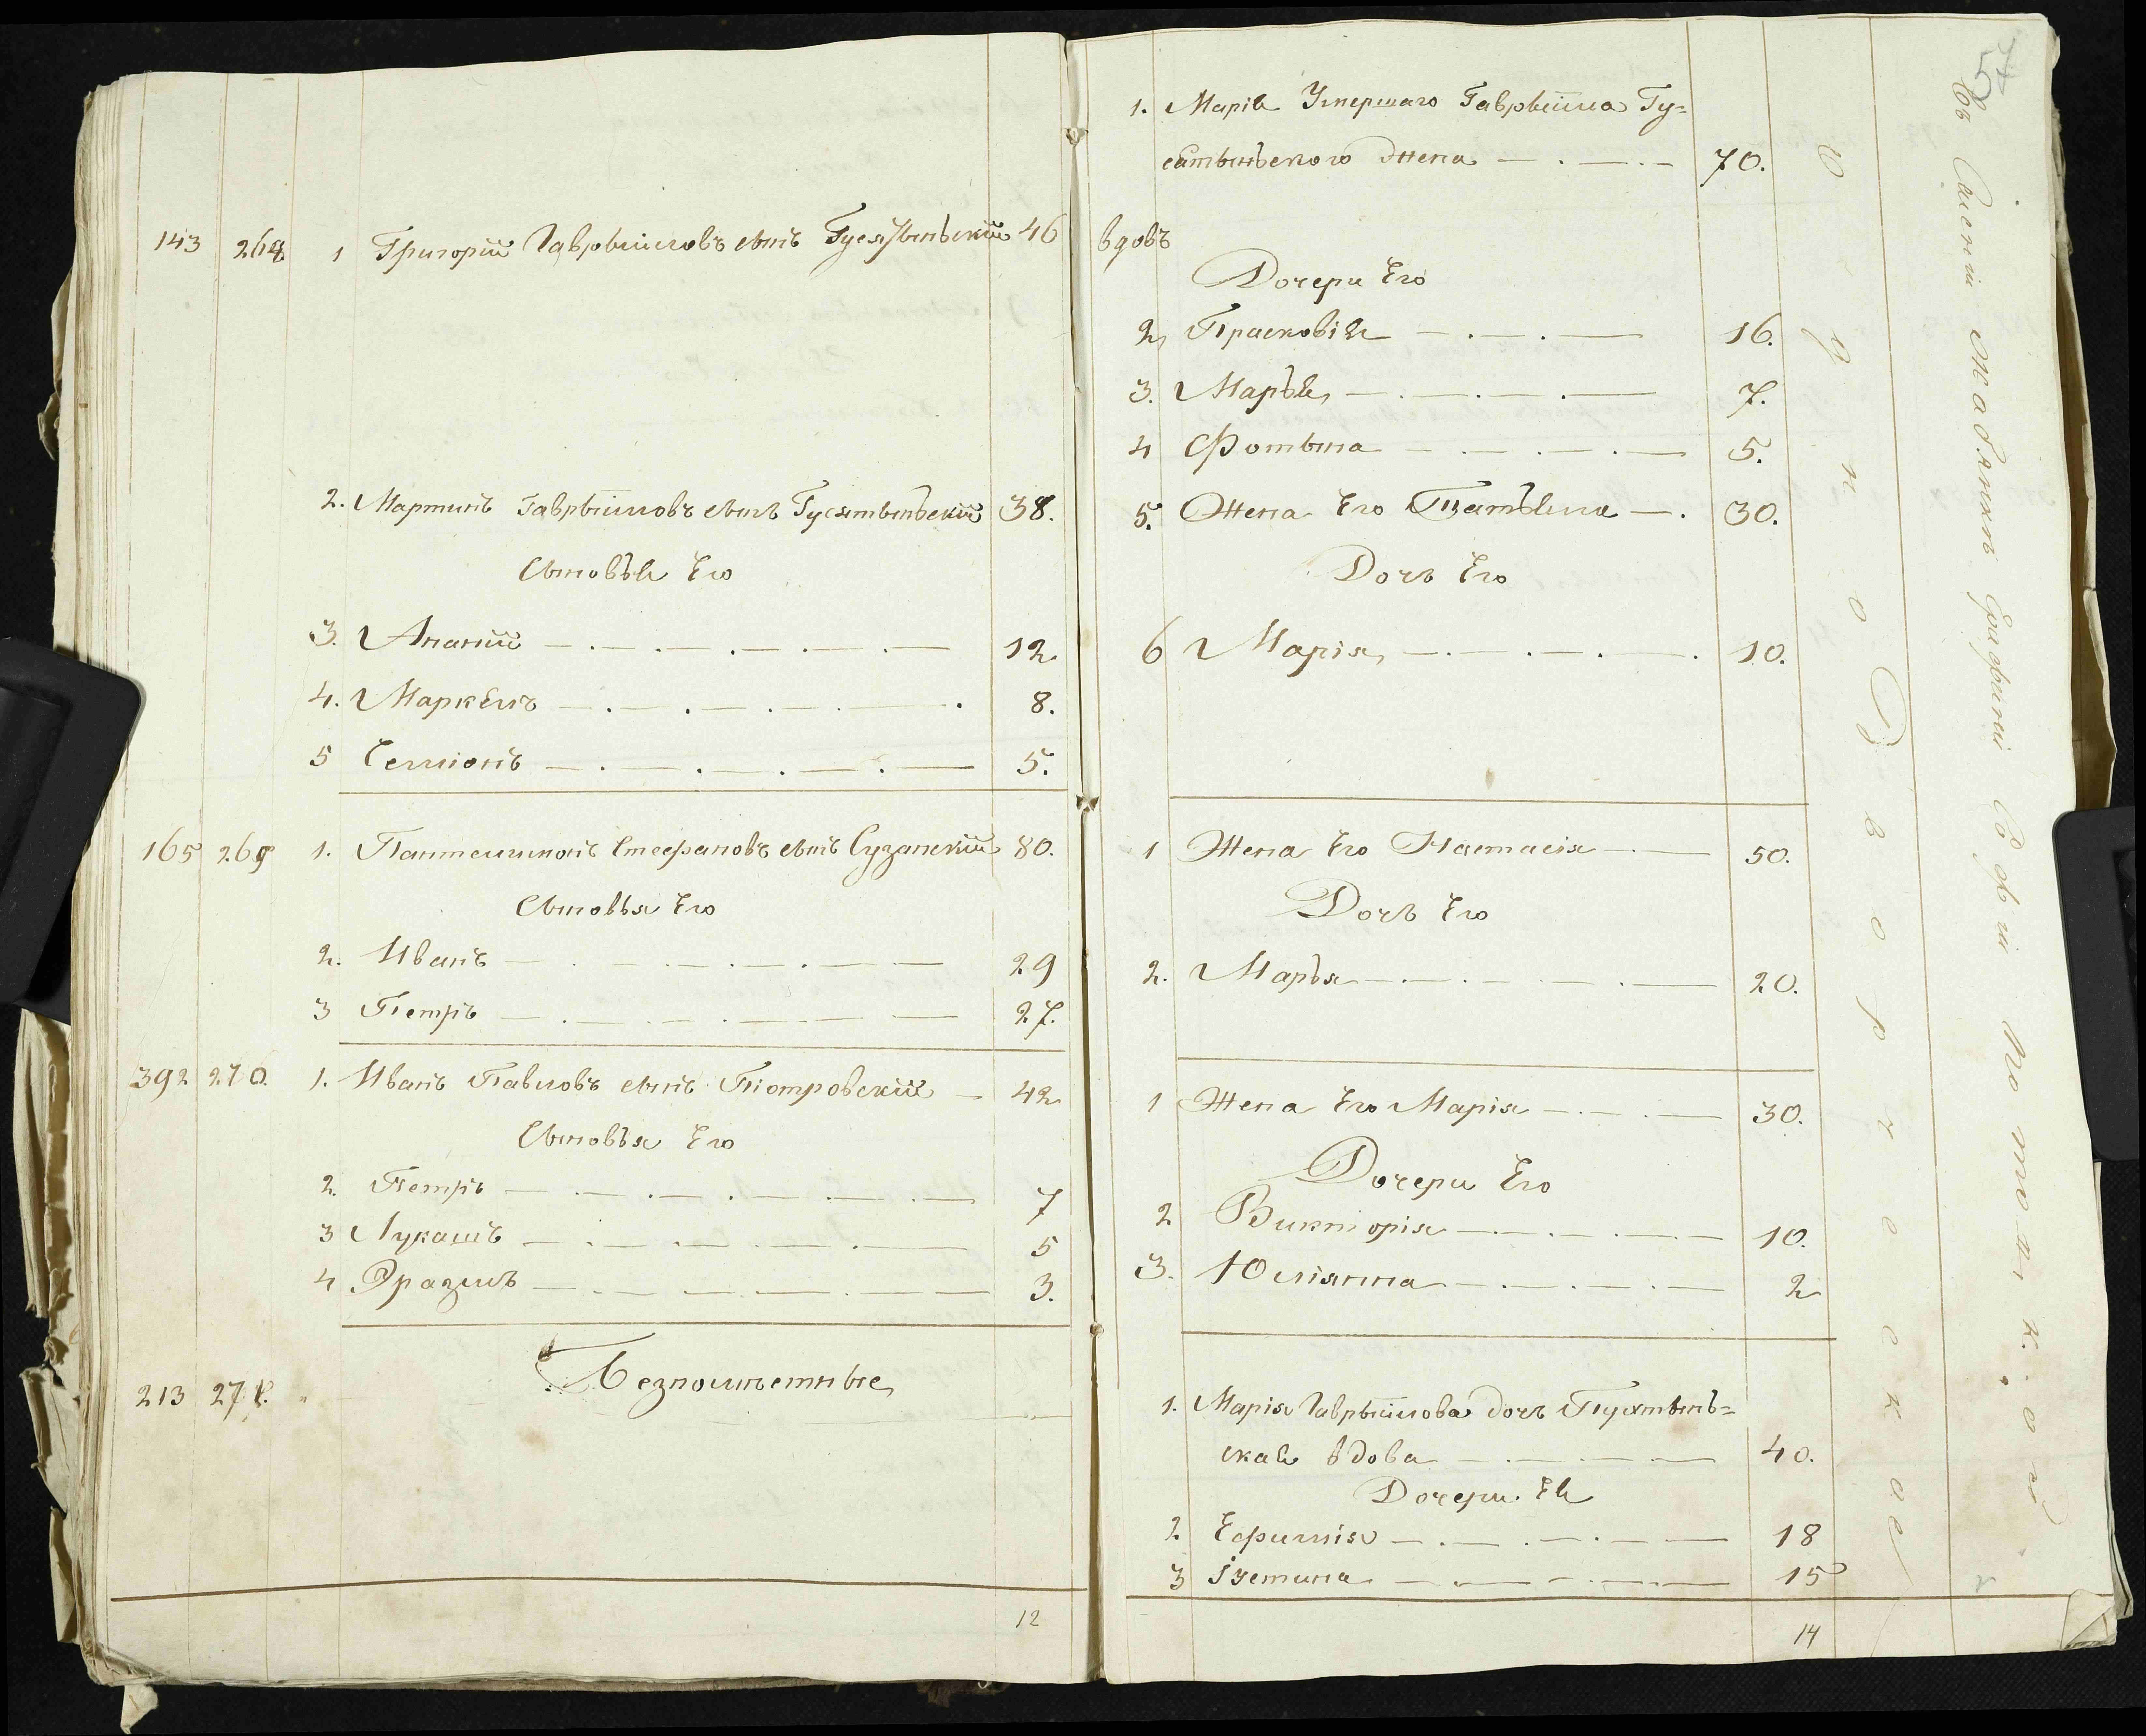 143 268 1 Григорій Гаврыиловъ сынъ Гусятынскій 46 вдовъ
2. Мартинъ Гаврыиловъ сынъ Гусятынъскій 38.
Сыновъя Его
3. Ананій 12
4. Маркелъ 8.
5 Семіонъ 5.
165 269 1. Пантелимонъ Стефановъ сынъ Сузанскій 80.
Сыновья Его
2. Иванъ 29
3 Петръ 27.
392 270. 1. Иванъ Павловъ сынъ Піотровскій 42
Сыновья Его
2. Петръ 7
3 Лукашъ 5
4 Эразмъ 3.
213 271. Безпоместные
12
1. Марія Умершаго Гаврыіила Гу=
сятынъского Жена 70.
Дочери Его
2 Прасковія 16.
3. Маръя 7.
4 Фотына 5.
5. Жена Его Татъяна 30.
Дочъ Его
6 Марія 10.
1 Жена Его Настасія 50.
Дочъ Его
2. Маръя 20.
1 Жена Его Марія 30.
Дочери Его
2 Викторія 10.
3. Юліянна 2
1. Марія Гаврыилова дочъ Гусятынъ=
ская вдова 40.
Дочери Ея
2 Ефимія 18
3 Іустина 15
14
Однодворческое